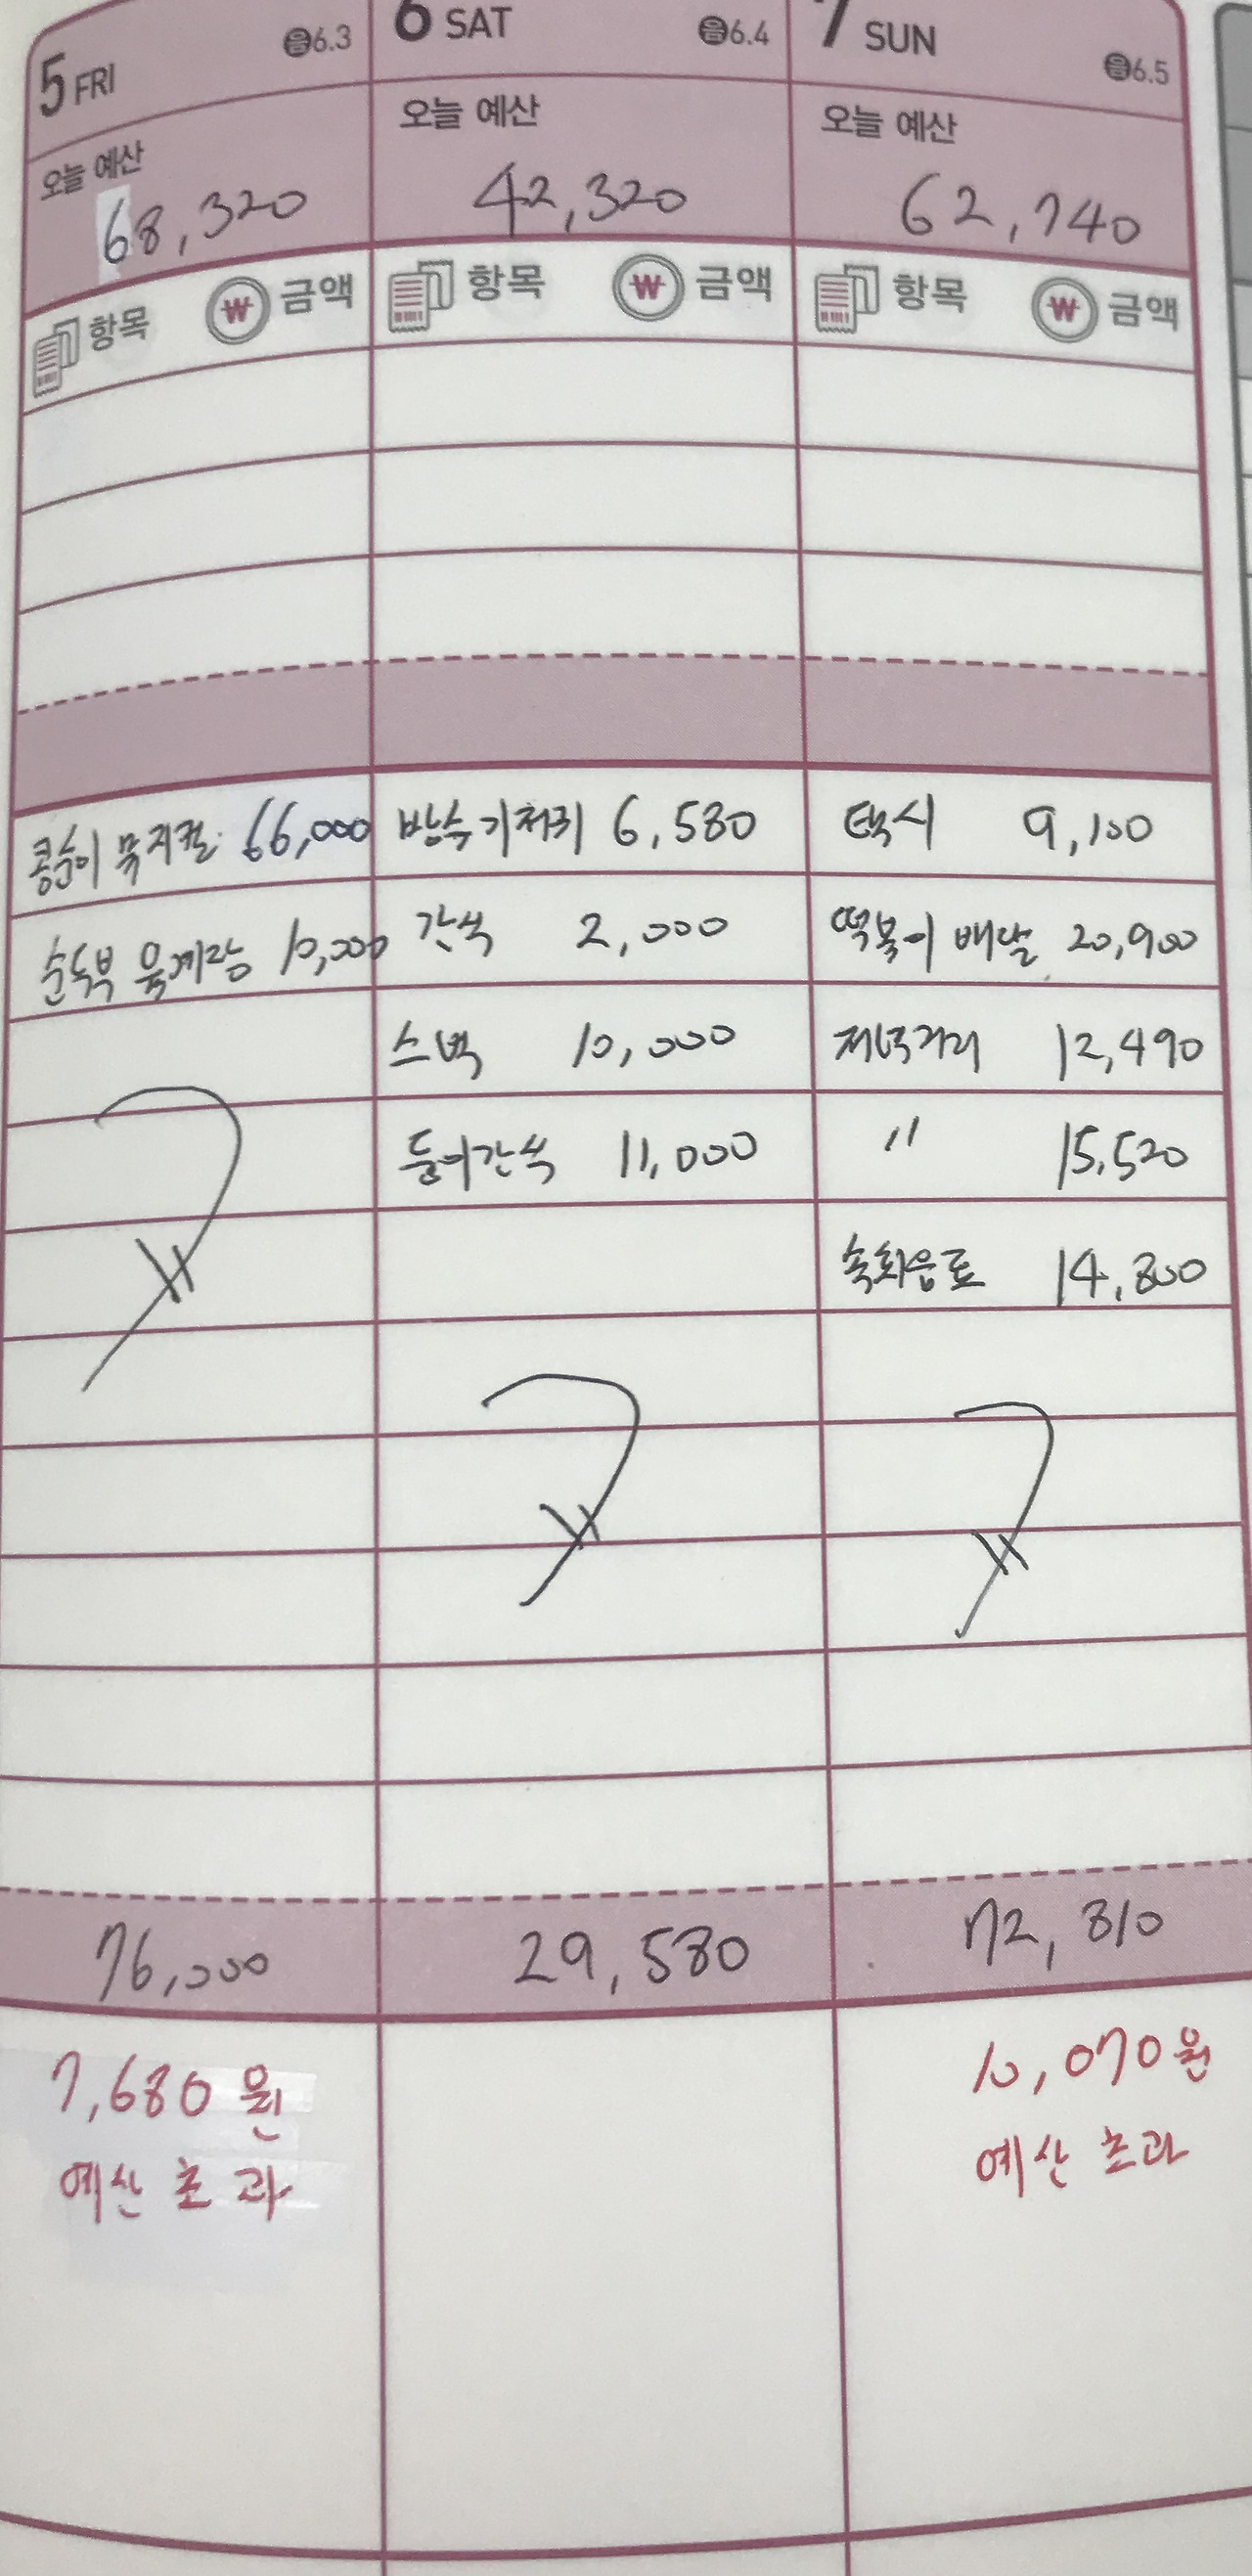 5 FRI 음6.3
오늘 예산
68,320
항목 ₩ 금액
콩순이 뮤지컬 66,000
순두부 육개장 10,000
76,000
7,680원
예산 초과
6 SAT 음6.4
오늘 예산
42,320
항목 ₩ 금액
방수기저귀 6,580
간식 2,000
스벅 10,000
둥이간식 11,000
29,580
7 SUN 음6.5
오늘 예산
62,740
항목 ₩ 금액
택시 9,100
떡볶이 배달 20,900
저녁거리 12,490
〃 15,520
숙취음료 14,800
72,810
10,070원
예산 초과